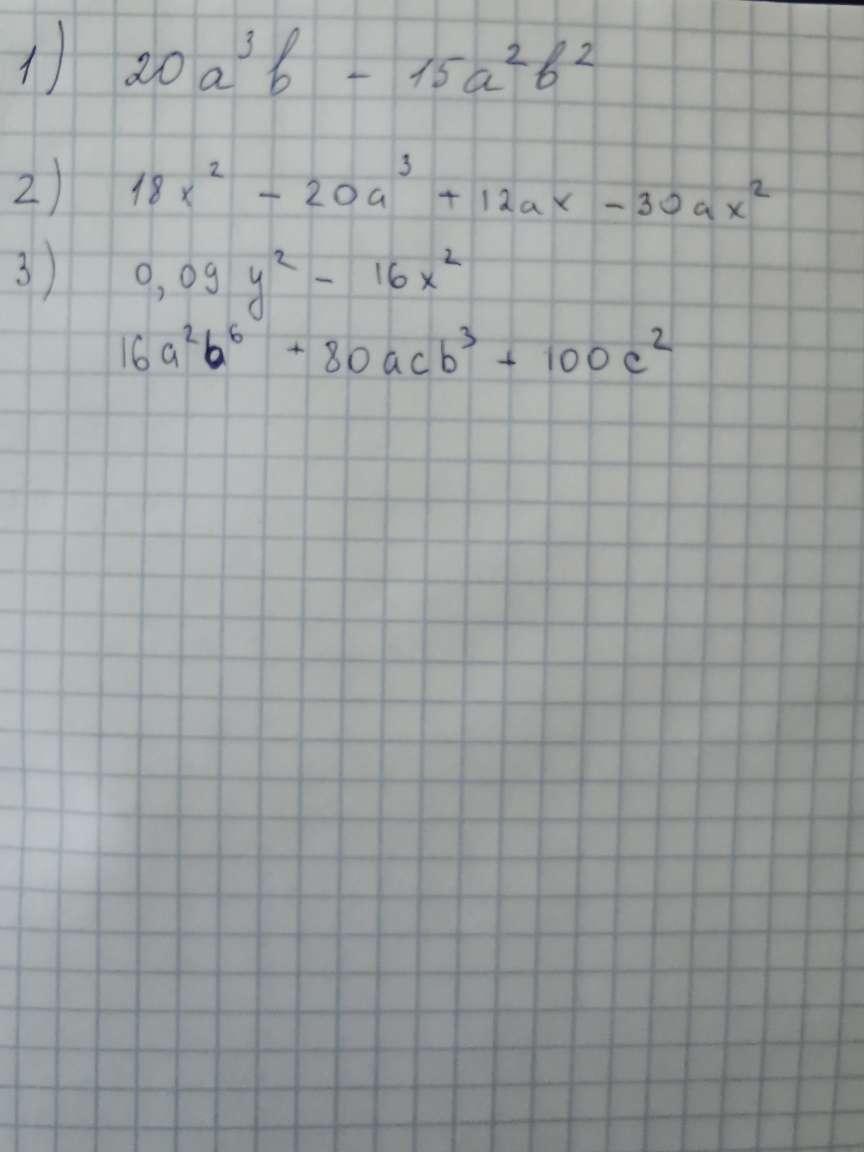 1) 20a³b - 15a²b²
2) 18x² - 20a³ + 12ax - 30ax²
3) 0,09y² - 16x²
16a²b⁶ + 80acb³ + 100c²